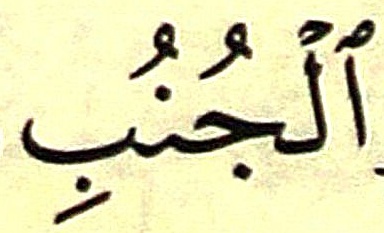 ٱلْجُنُبِ